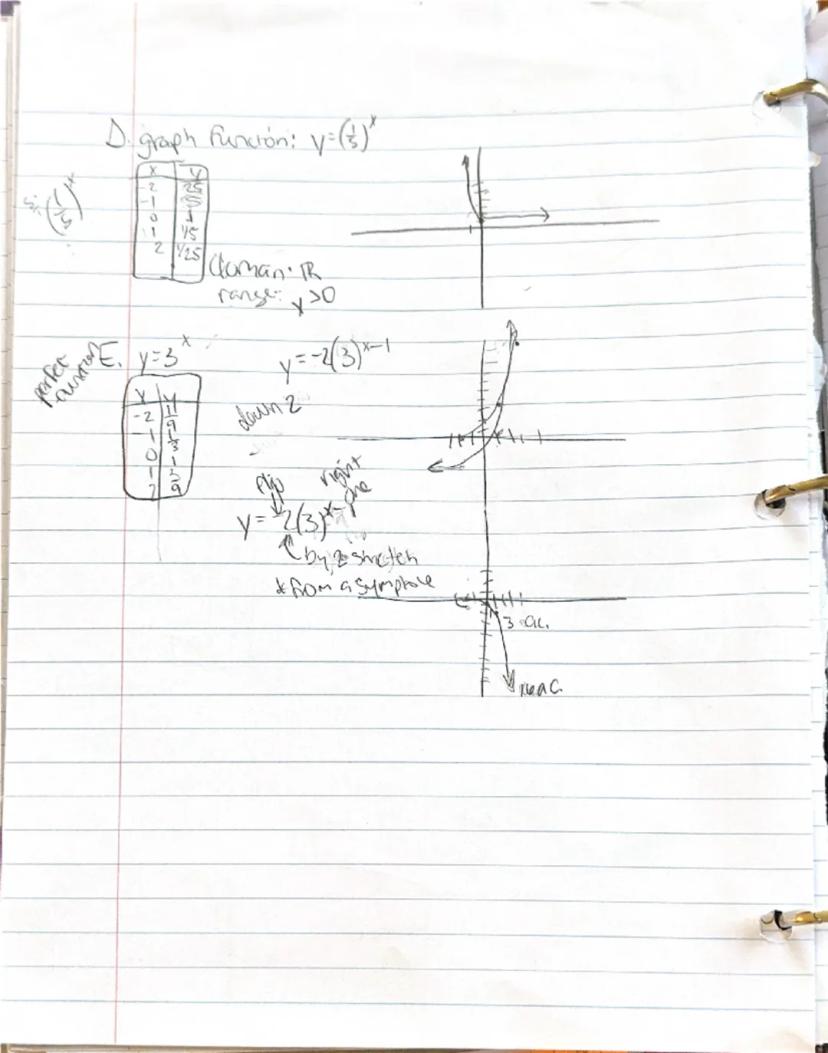 D. graph function: y=(1/5)^x
x y
-2 25
-1 5
0 1
1 1/5
2 1/25
(1/5)^x
domain: ℝ
range: y>0
E. y=3^x
y=-2(3)^x-1
x y
-2 1/9
-1 1/3
0 1
1 3
2 9
down 2
flip
right one
y=-2(3)^x-
by 2 stretch
* from asymptote